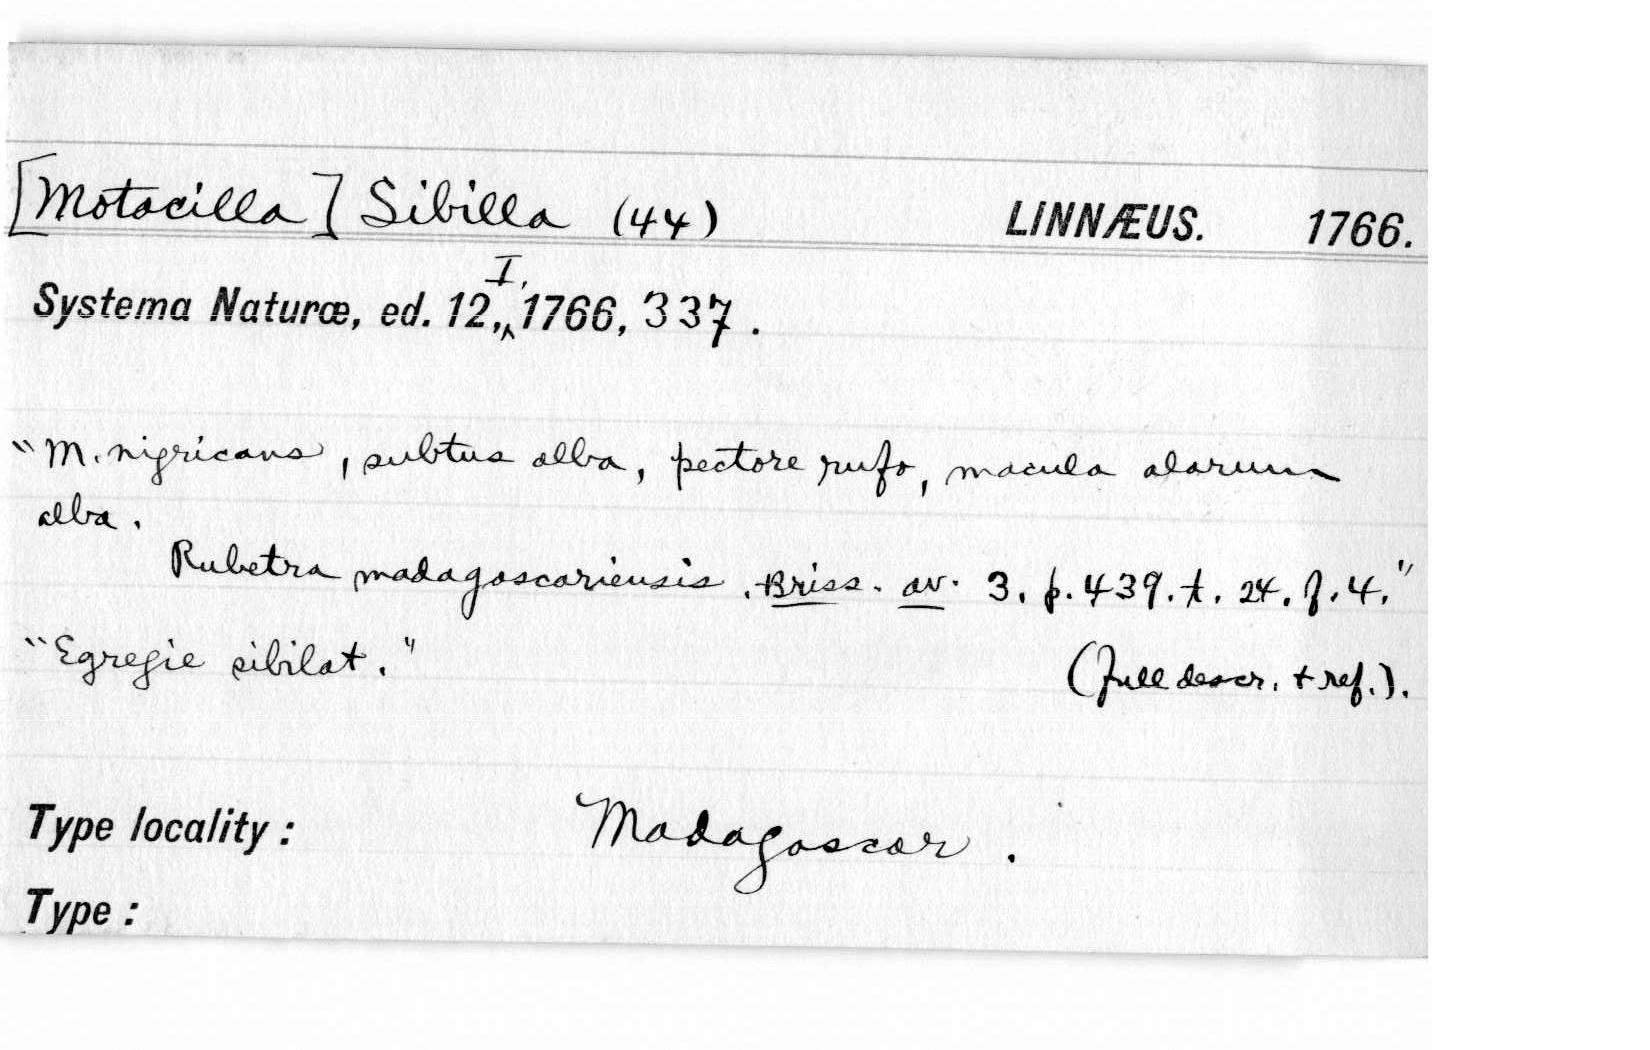 [Motacilla] Sibilla (44) LINNÆUS. 1766.
Systema Naturæ, ed. 12, I, 1766, 337.
"M. nigricans, subtus alba, pectore rufo, macula alarum
alba.
Rubetra madagascariensis. Briss. av. 3. p. 439. t. 24. f. 4."
"Egregie sibilat."
(full descr. + ref.).
Type locality: Madagascar.
Type: